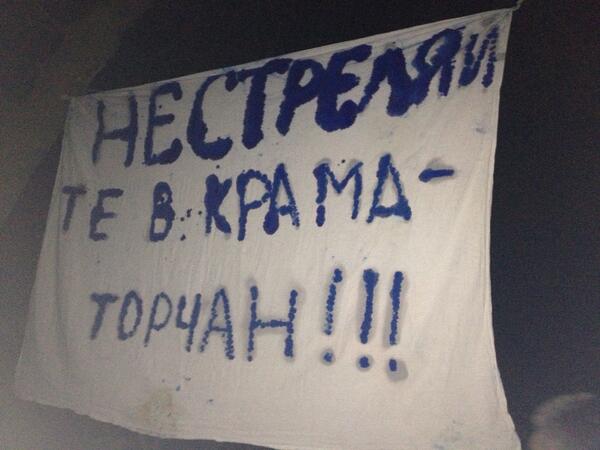 НЕСТРЕЛЯЙ
ТЕ В КРАМА-
ТОРЧАН!!!